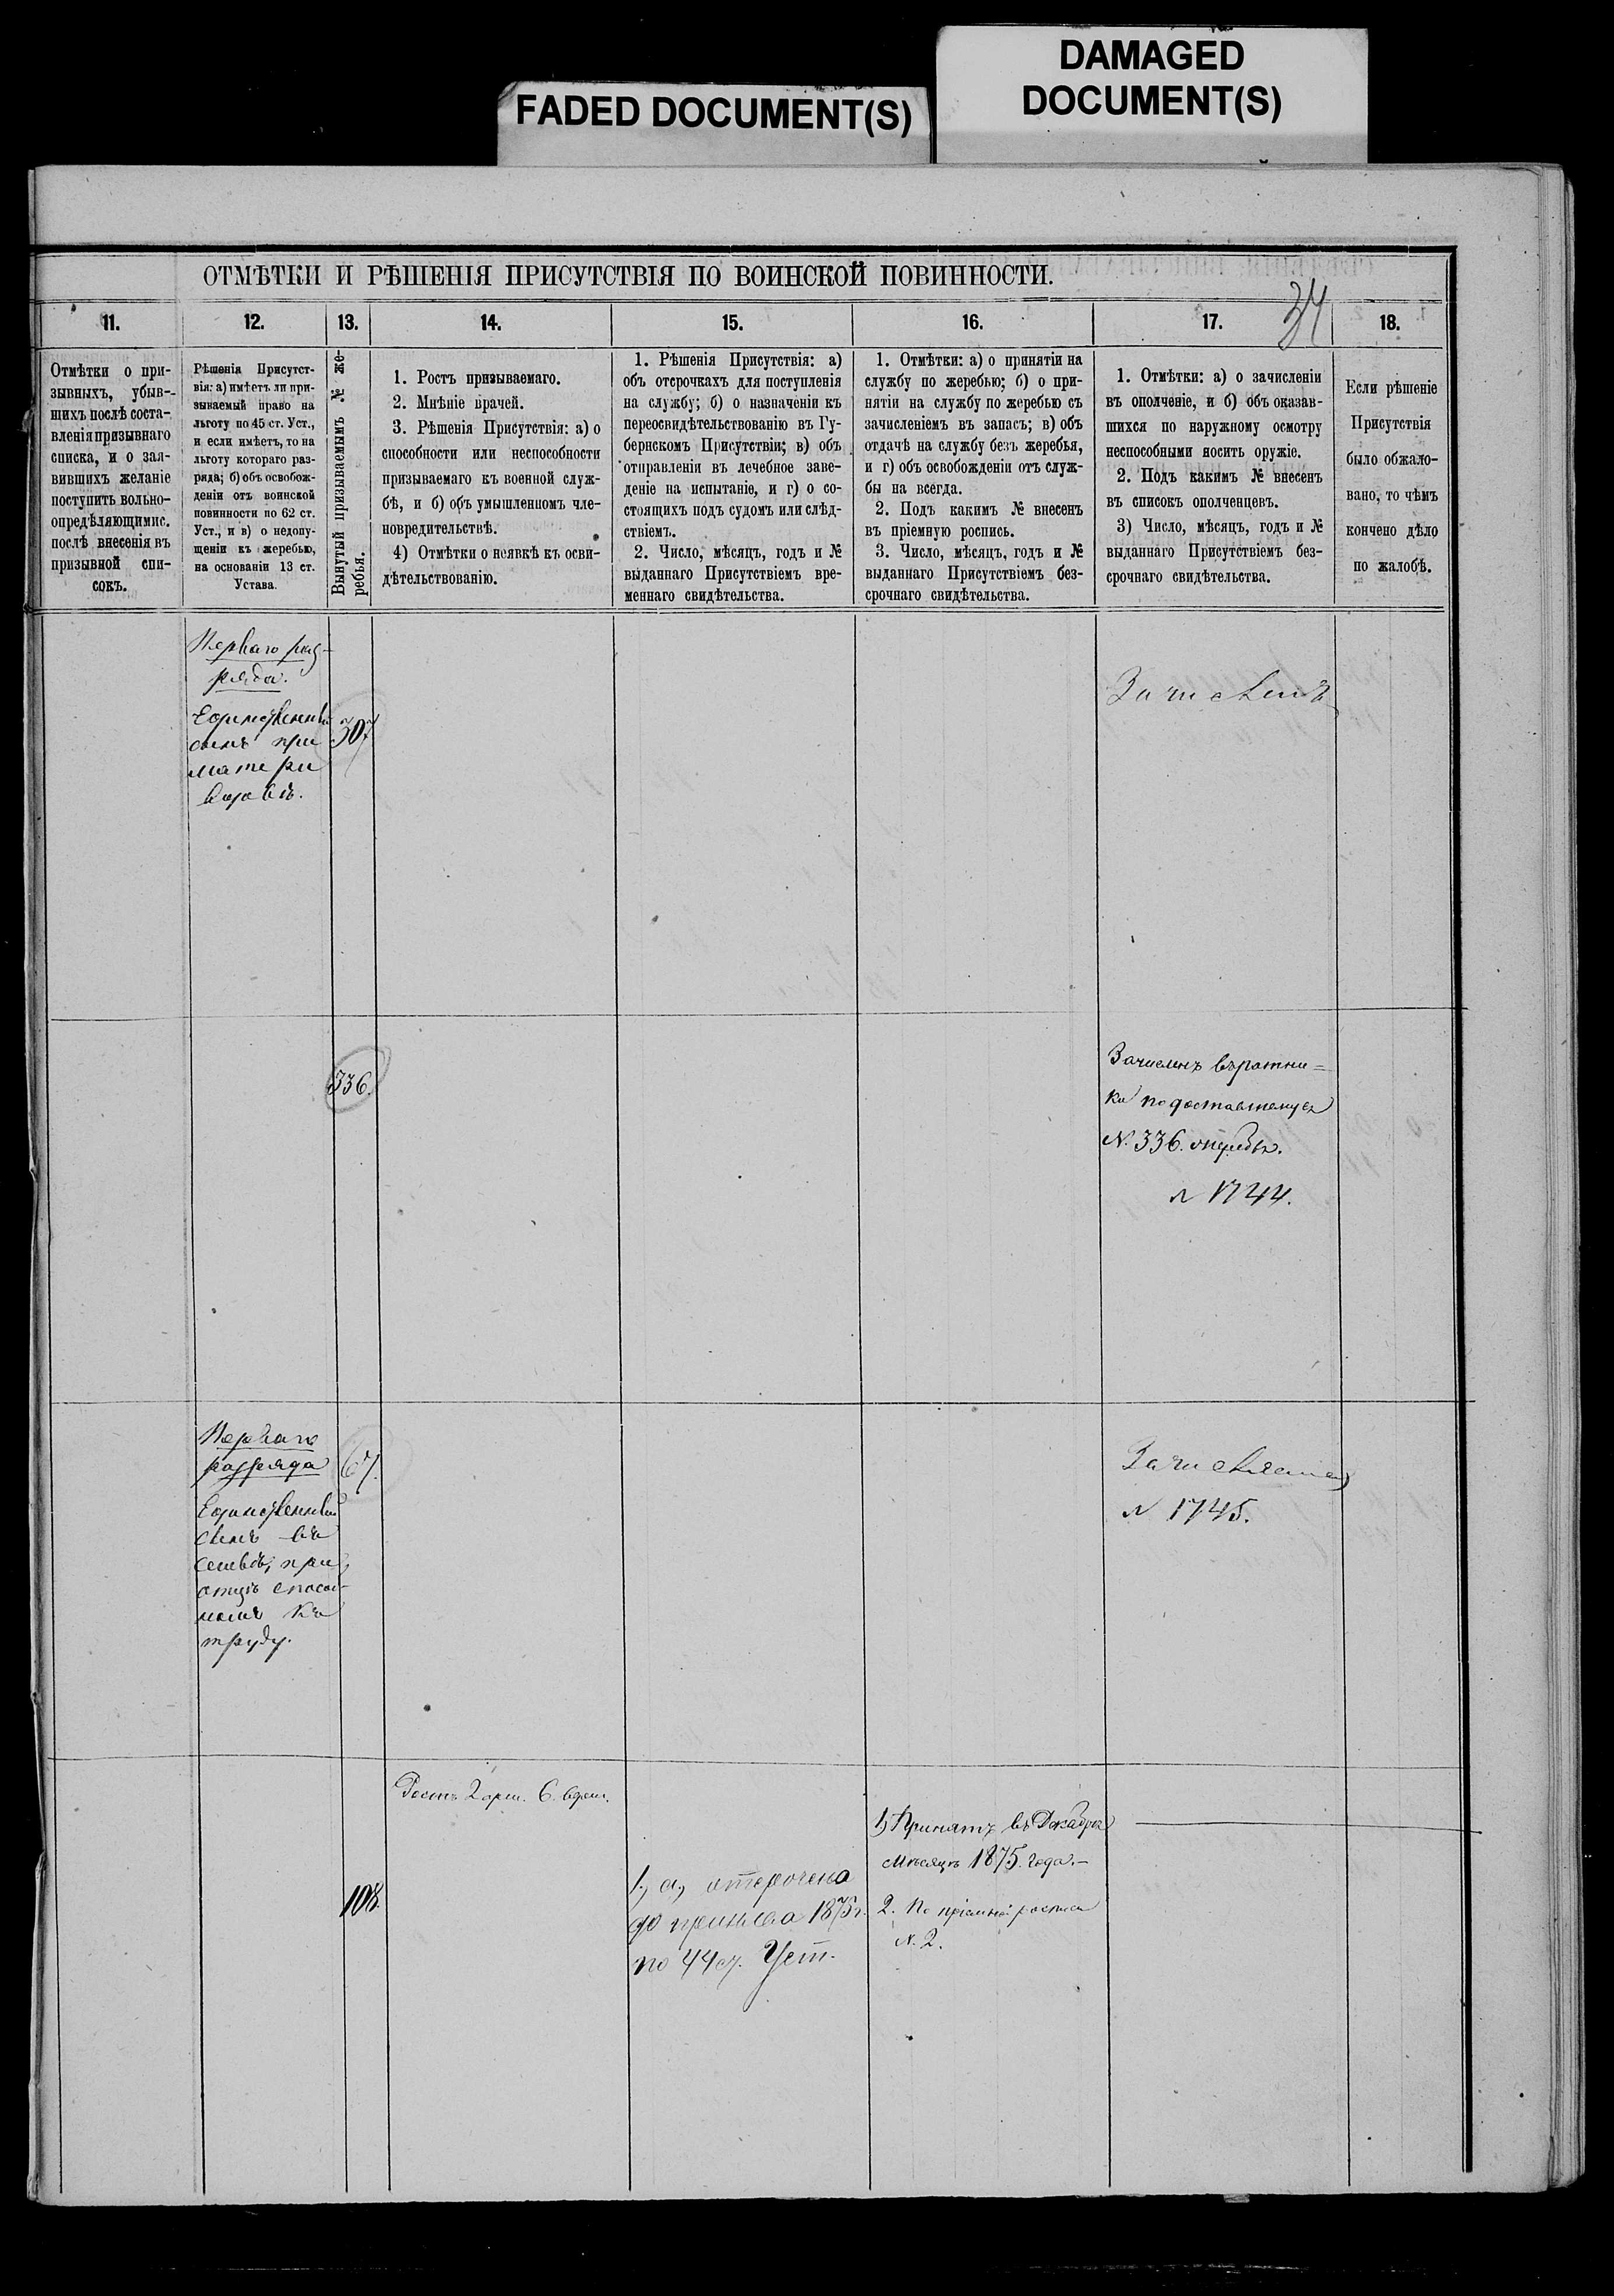 DAMAGED
DOCUMENT(S)
FADED DOCUMENT(S)
ОТМѢТКИ И РѢШЕНІЯ ПРИСУТСТВІЯ ПО ВОИНСКОЙ ПОВИННОСТИ.
34
11.
Отмѣтки о при-
зывныхъ, убыв-
шихъ послѣ соста-
вленія призывнаго
списка, и о зая-
вившихъ желаніе
поступить вольно-
опредѣляющимис.
послѣ внесенія въ
призывной спи-
сокъ.
12.
Рѣшенія Присутст-
вія: а) имѣетъ ли при-
зываемый право на
льготу по 45 ст. Уст.,
и если имѣетъ, то на
льготу котораго раз-
ряда; б) объ освобож-
деніи отъ воинской
повинности по 62 ст.
Уст., и в) о недопу-
щеніи къ жеребью,
на основаніи 13 ст.
Устава.
13.
Вынутый призываемымъ № же-
ребья.
14.
1. Ростъ призываемаго.
2. Мнѣніе врачей.
3. Рѣшенія Присутствія: а) о
способности или неспособности
призываемаго къ военной служ-
бѣ, и б) объ умышленномъ чле-
новредительствѣ.
4) Отмѣтки о неявкѣ къ осви-
дѣтельствованію.
15.
1. Рѣшенія Присутствія: а)
объ отсрочкахъ для поступленія
на службу; б) о назначеніи къ
переосвидѣтельствованію въ Гу-
бернскомъ Присутствіи; в) объ
отправленіи въ лечебное заве-
деніе на испытаніе, и г) о со-
стоящихъ подъ судомъ или слѣд-
ствіемъ.
2. Число, мѣсяцъ, годъ и №
выданнаго Присутствіемъ вре-
меннаго свидѣтельства.
16.
1. Отмѣтки: а) о принятіи на
службу по жеребью; б) о при-
нятіи на службу по жеребью съ
зачисленіемъ въ запасъ; в) объ
отдачѣ на службу безъ жеребья,
и г) объ освобожденіи отъ служ-
бы на всегда.
2. Подъ какимъ № внесенъ
въ пріемную роспись.
3. Число, мѣсяцъ, годъ и №
выданнаго Присутствіемъ без-
срочнаго свидѣтельства.
17.
1. Отмѣтки: а) о зачисленіи
въ ополченіе, и б) объ оказав-
шихся по наружному осмотру
неспособными носить оружіе.
2. Подъ какимъ № внесенъ
въ списокъ ополченцевъ.
3) Число, мѣсяцъ, годъ и №
выданнаго Присутствіемъ без-
срочнаго свидѣтельства.
18.
Если рѣшеніе
Присутствія
было обжало-
вано, то чѣмъ
кончено дѣло
по жалобѣ.
Перваго раз-
ряда.
Единственный
сынъ при
матери
вдовѣ.
307
Зачисленъ
336.
Зачисленъ въ ратни-
ки по доставшемуся
№. 336. жеребью.
№ 1744.
Перваго
разряда
Единственный
сынъ въ
семьѣ, при
отцѣ способ-
номъ къ
труду.
67.
Зачисляется
№ 1745.
108.
Ростъ 2 арш. 6. верш.
1, а, отсрочено
до призыва 1875 г.
по 44 ст. Уст.
1) Принятъ въ Декабрѣ
мѣсяцѣ 1875. года.-
2. По пріемной росписи
№. 2.